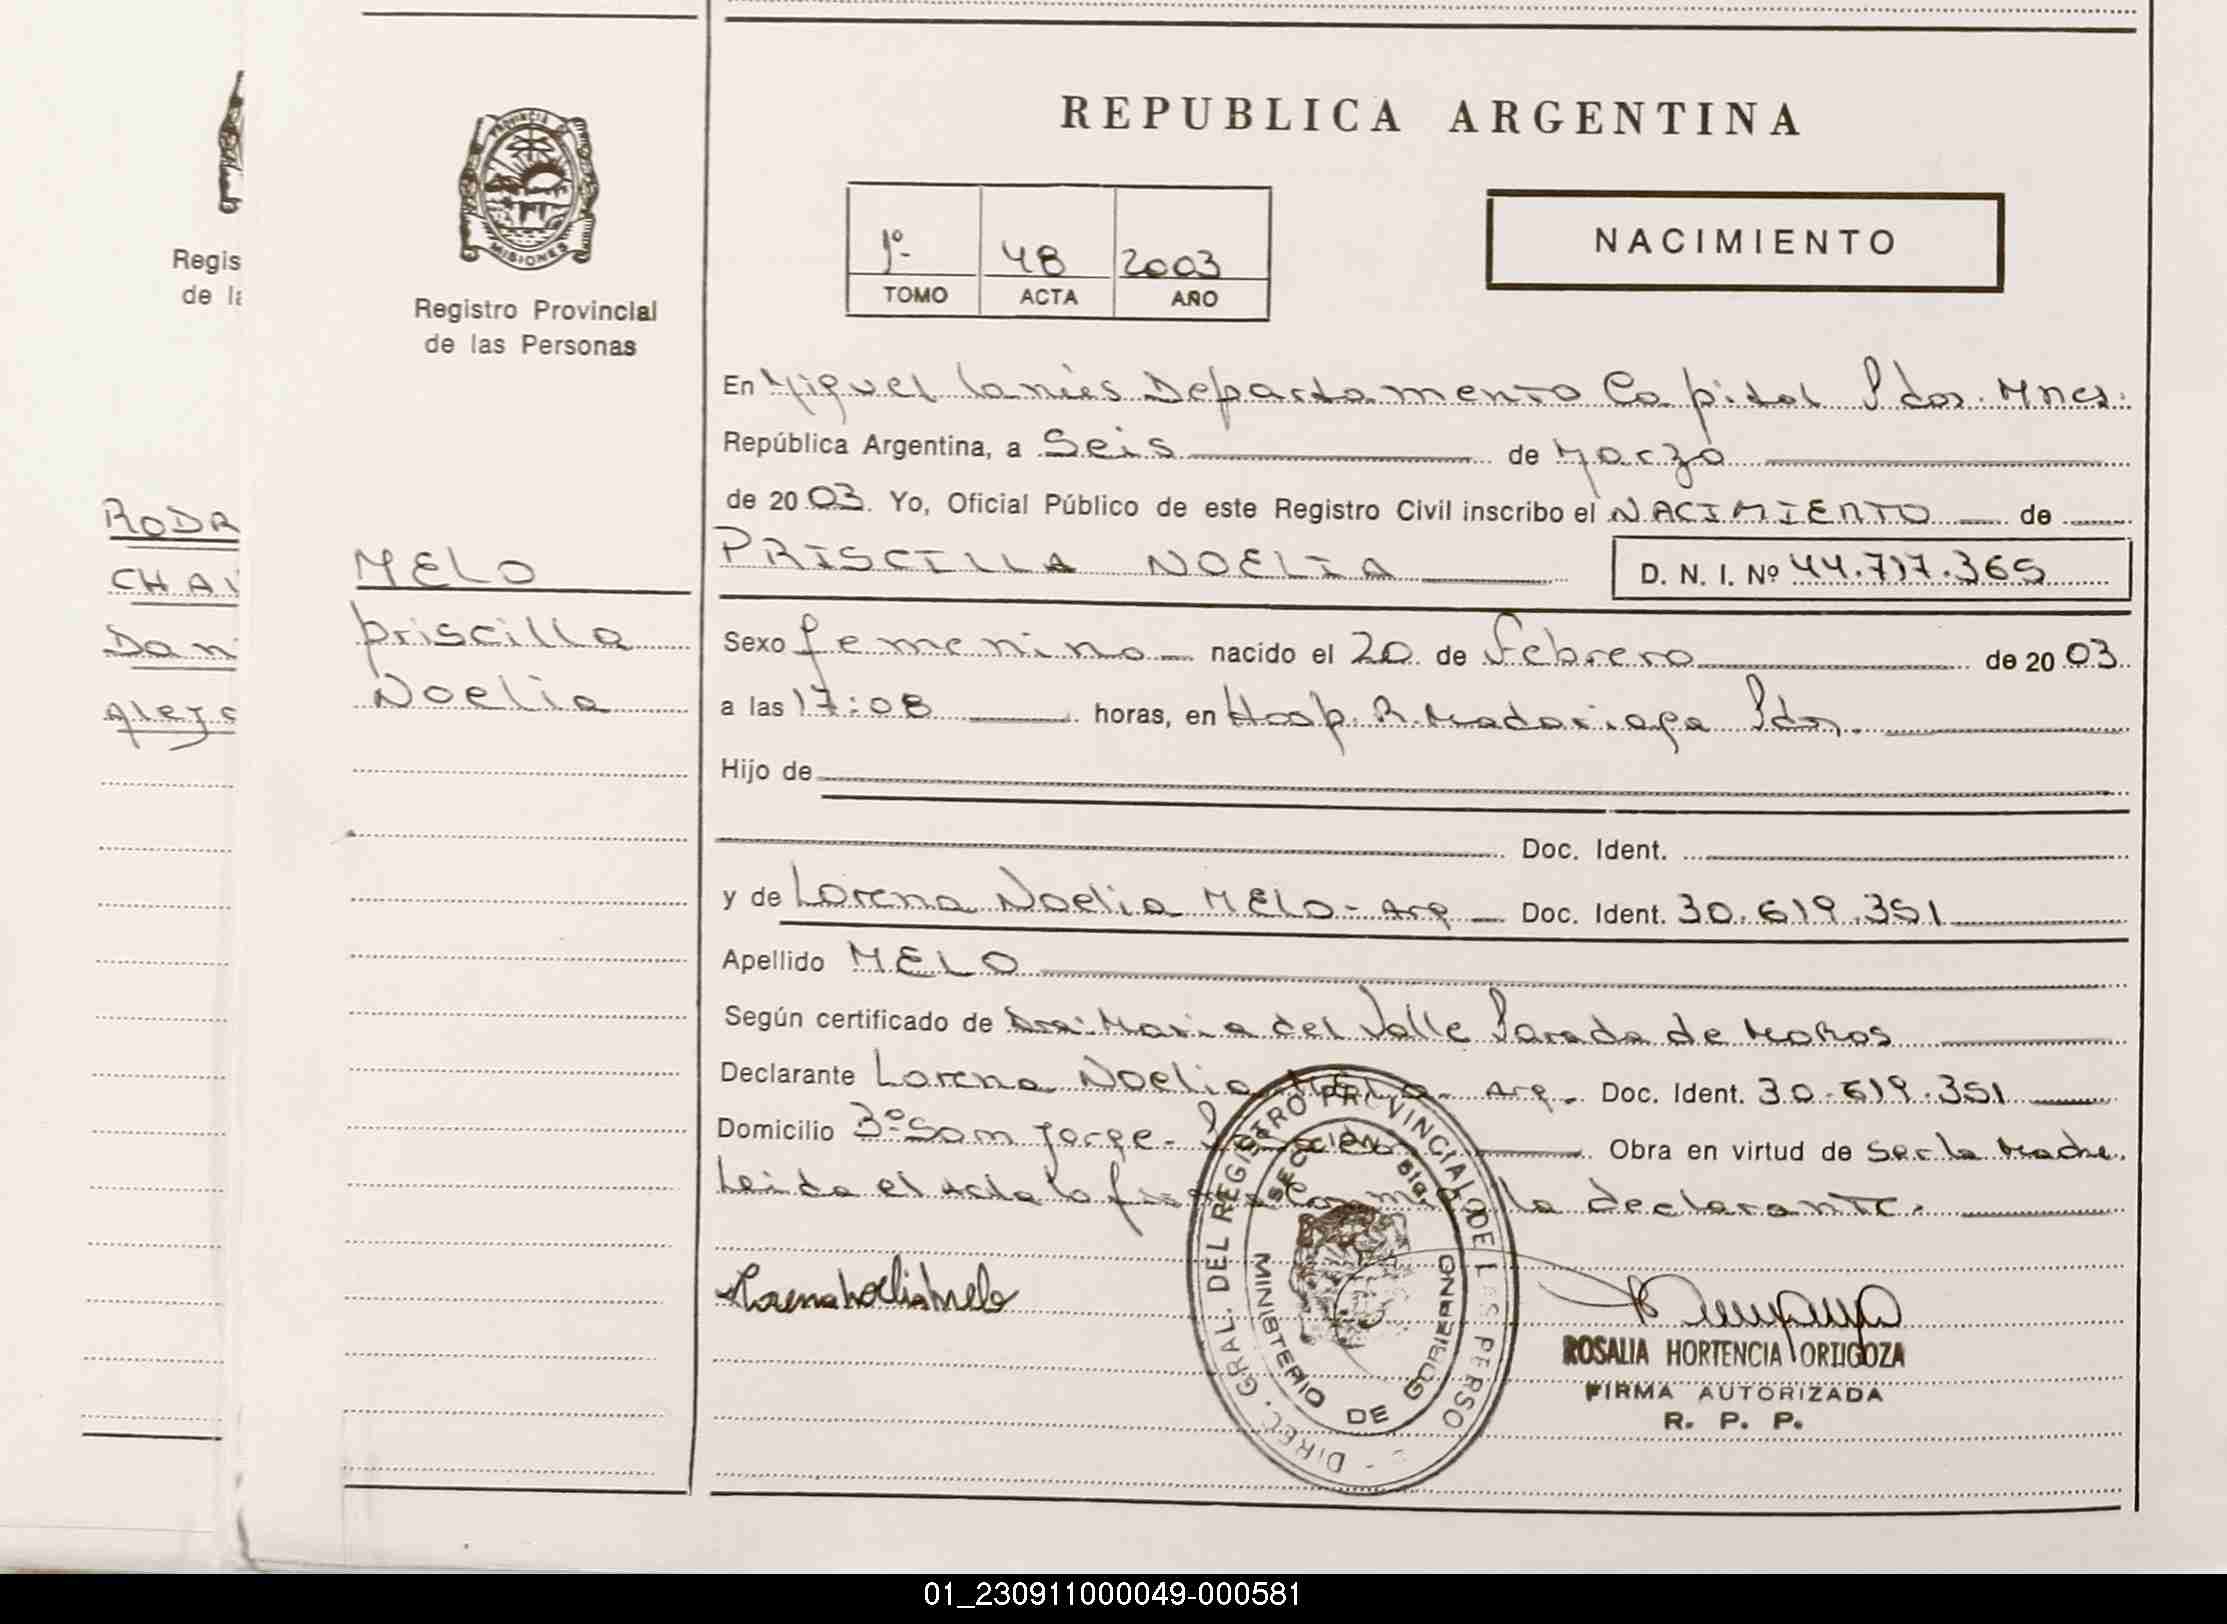 REPUBLICA ARGENTINA
PROVINCIA DE MISIONES
Registro Provincial
de las Personas
Regis
de la
1º 48 2003
TOMO ACTA AÑO
NACIMIENTO
En Miguel Lanús Departamento Capital Pdas. Mnes.
República Argentina, a Seis de Marzo
de 2003. Yo, Oficial Público de este Registro Civil inscribo el NACIMIENTO de
PRISCILLA NOELIA D. N. I. Nº 44.717.365
RODR
CHAV
Dani
Aleja
MELO
Priscilla
Noelia
Sexo femenino nacido el 20 de Febrero de 2003
a las 17:08 horas, en Hosp. R. Madariaga Pdas.
Hijo de
Doc. Ident.
y de Lorena Noelia MELO - Arg Doc. Ident. 30.619.351
Apellido MELO
Según certificado de Dra: Maria del Valle Parada de Moros
Declarante Lorena Noelia Melo - Arg. Doc. Ident. 30.619.351
Domicilio 3º San Jorge - Obra en virtud de ser la Madre.
Leida el Acta la firma Conmigo la declarante.
Lorena Noelia Melo
DIREC. GRAL. DEL REGISTRO PROVINCIAL DE LAS PERSO
SECCION 6ta.
MINISTERIO DE GOBIERNO
ROSALIA HORTENCIA ORTIGOZA
FIRMA AUTORIZADA
R. P. P.
01_230911000049-000581